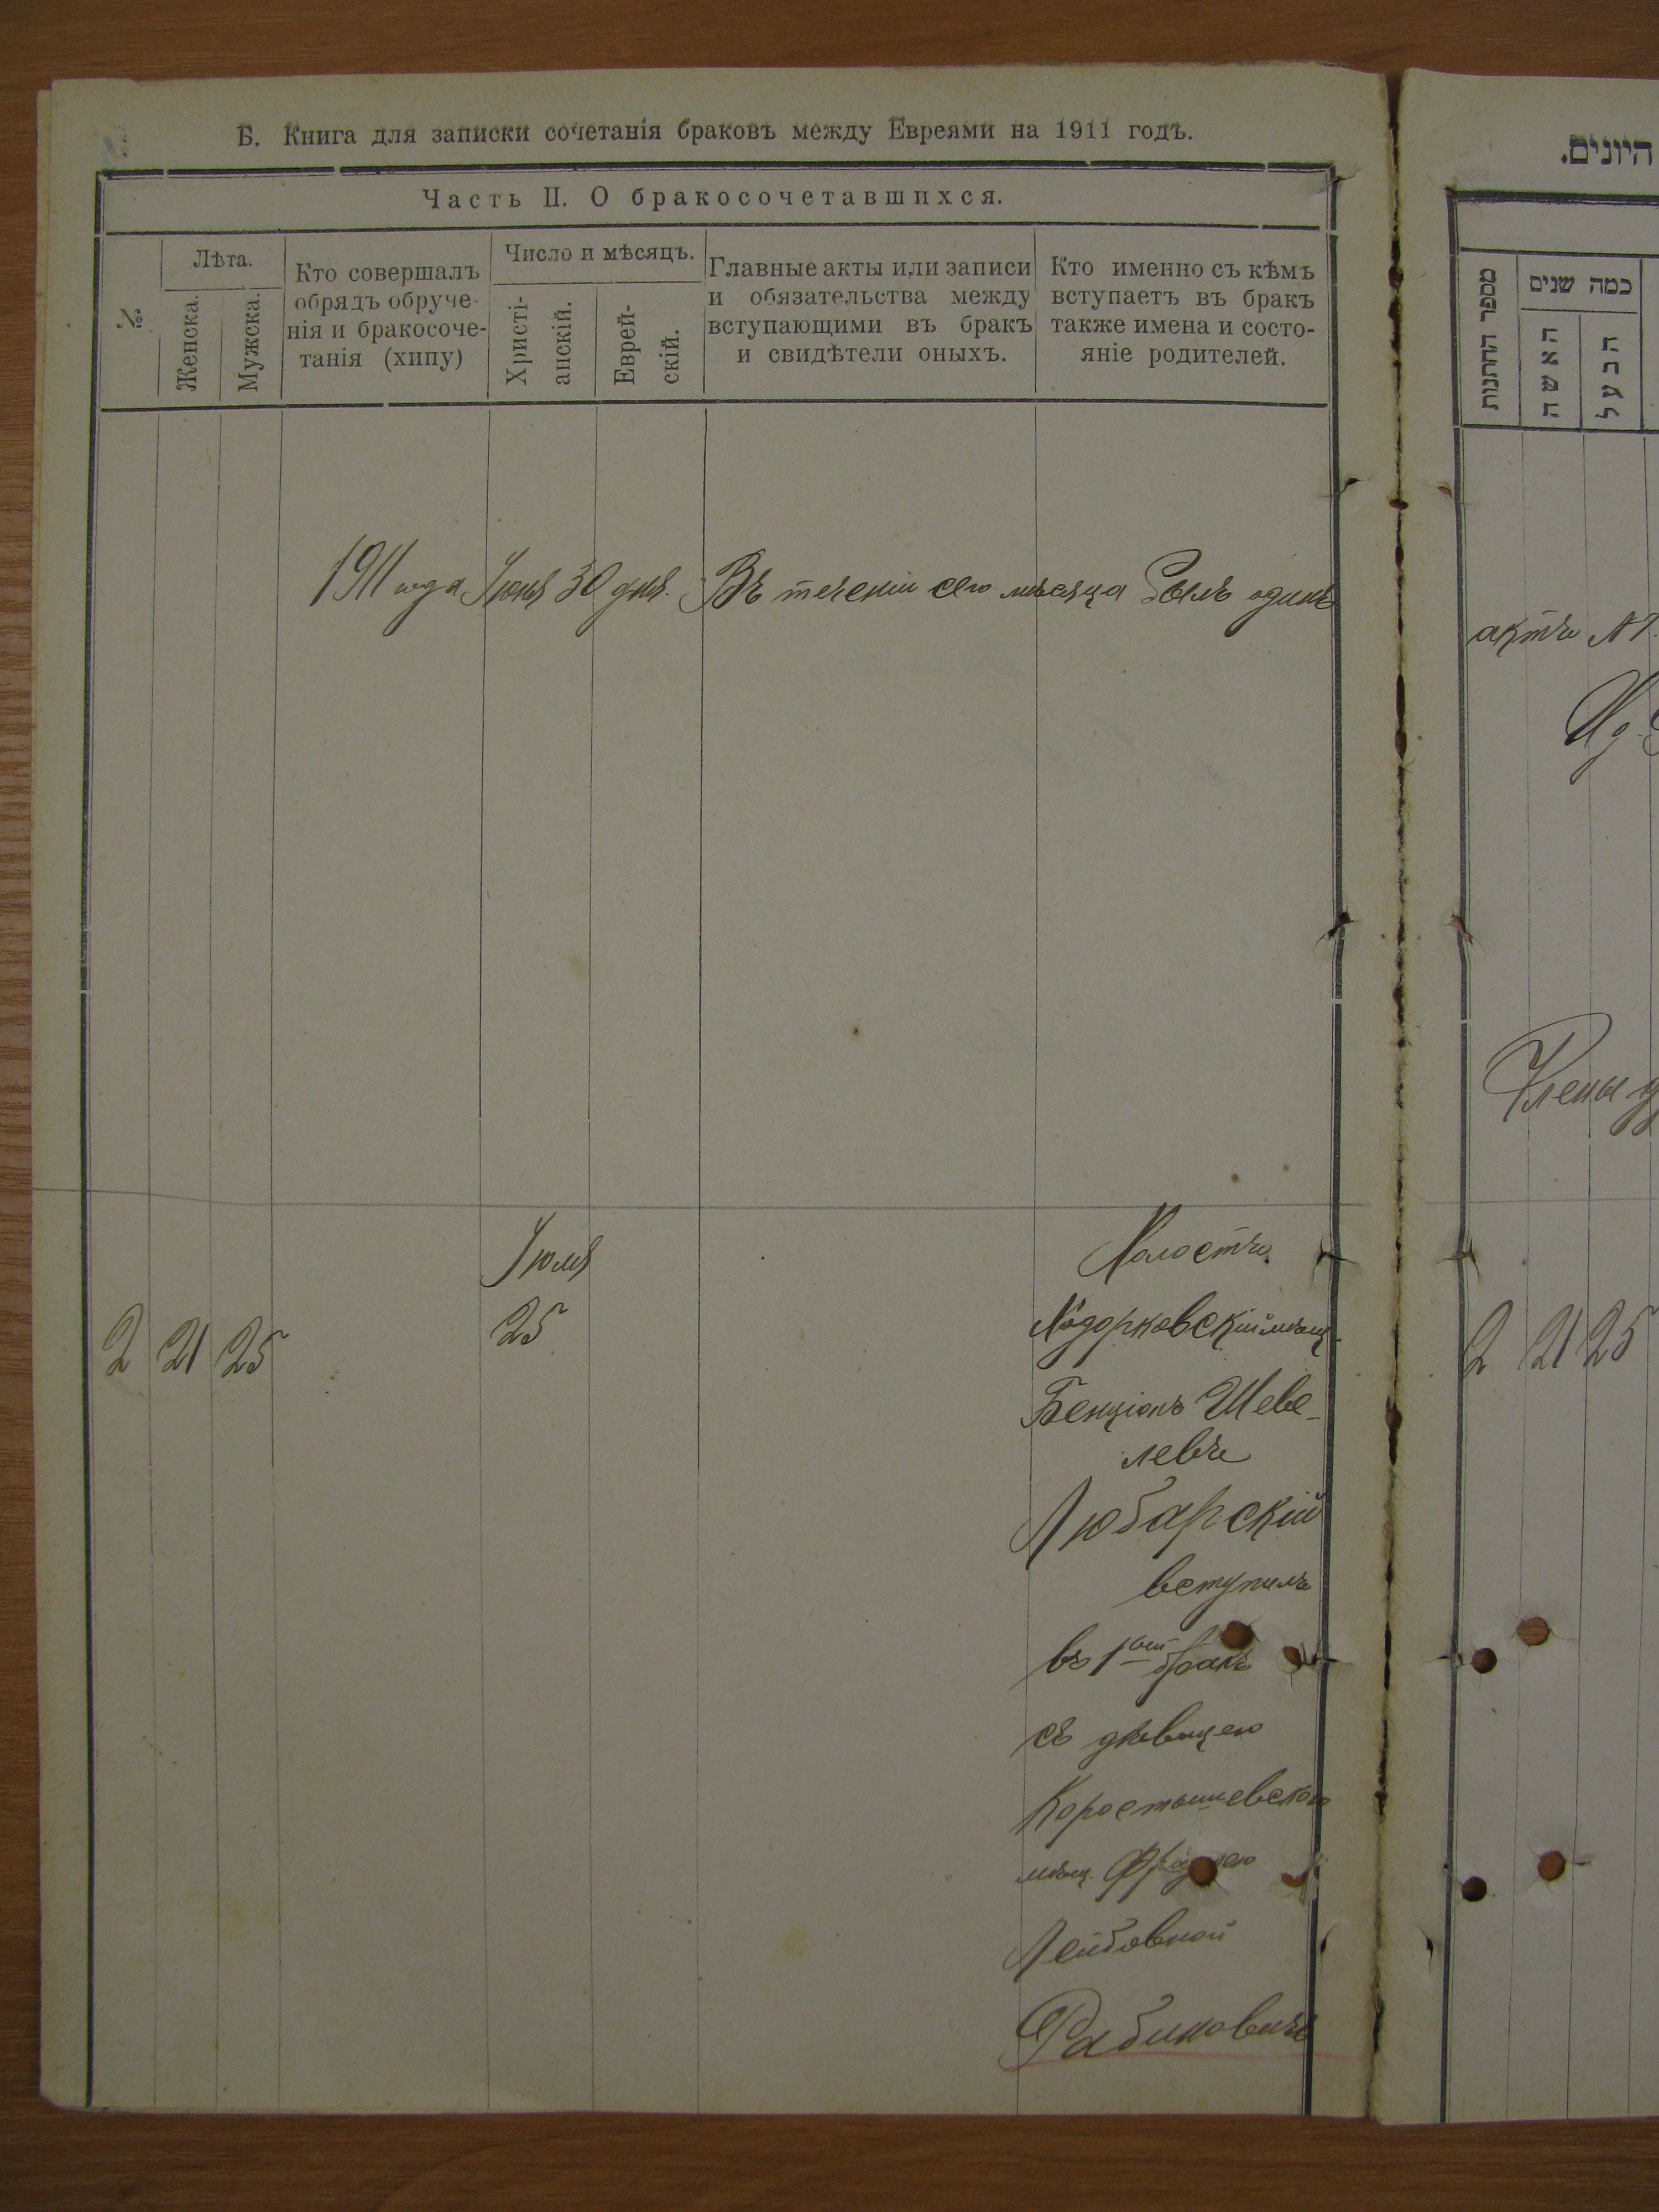 Б. Книга для записки сочетанія браковъ между Евреями на 1911 годъ.
Часть II. О бракосочетавшихся.
№
Лѣта.
Женска.
Мужска.
Кто совершалъ
обрядъ обруче-
нія и бракосоче-
танія (хипу)
Число и мѣсяцъ.
Христі-
анскій.
Еврей-
скій.
Главные акты или записи
и обязательства между
вступающими въ бракъ
и свидѣтели оныхъ.
Кто именно съ кѣмъ
вступаетъ въ бракъ
также имена и состо-
яніе родителей.
1911 года Іюня 30 дня. Въ теченіи сего мѣсяца былъ одинъ
Іюля
2 21 25 25
Холостъ
Ходорковскій мѣщ.
Бенціонъ Шеве-
левъ
Любарскій
вступилъ
въ 1ый бракъ
съ дѣвицею
Коростышевскою
мѣщ.
Лейбовной
Рабиновичъ
היונים.
מספר החתנות
כמה שנים
האשה
הבעל
актъ №1.
Члены
2 21 25